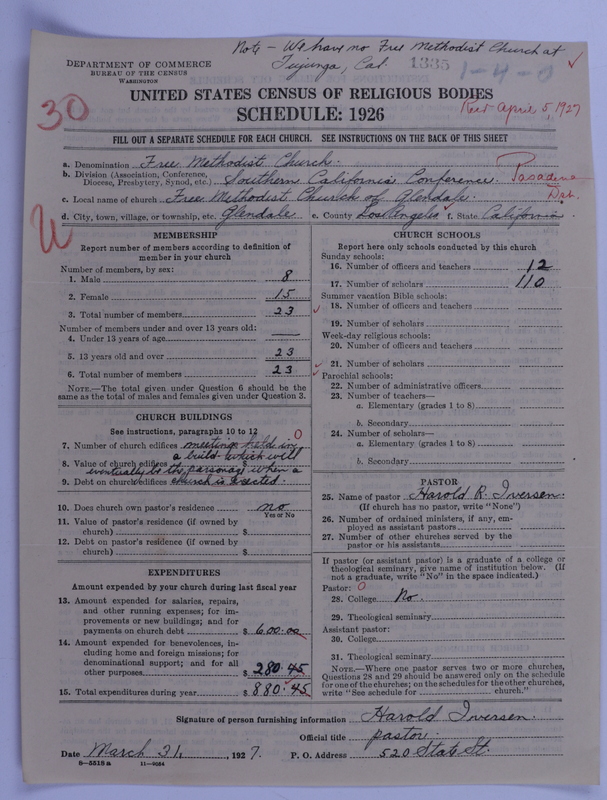 Note - We have no Free Methodist Church at
Tujunga, Cal. 1335
DEPARTMENT OF COMMERCE
BUREAU OF THE CENSUS
WASHINGTON
1-4-0
UNITED STATES CENSUS OF RELIGIOUS BODIES
30
SCHEDULE: 1926
Rec'd April 5, 1927
FILL OUT A SEPARATE SCHEDULE FOR EACH CHURCH. SEE INSTRUCTIONS ON THE BACK OF THIS SHEET
a. Denomination Free Methodist Church.
b. Division (Association, Conference, Diocese, Presbytery, Synod, etc.) Southern California Conference. Pasadena
c. Local name of church Free Methodist Church of Glendale. Dist.
d. City, town, village, or township, etc. Glendale e. County Los Angeles f. State California.
MEMBERSHIP
Report number of members according to definition of
member in your church
Number of members, by sex:
1. Male 8
2. Female 15
3. Total number of members 23
Number of members under and over 13 years old:
4. Under 13 years of age
5. 13 years old and over 23
6. Total number of members 23
NOTE.—The total given under Question 6 should be the
same as the total of males and females given under Question 3.
CHURCH BUILDINGS
See instructions, paragraphs 10 to 12
7. Number of church edifices meetings held in 0
a build- which will
8. Value of church edifices $
eventually be the parsonage when a
9. Debt on church edifices church is erected.
10. Does church own pastor's residence no
Yes or No
11. Value of pastor's residence (if owned by
church) $
12. Debt on pastor's residence (if owned by
church) $
EXPENDITURES
Amount expended by your church during last fiscal year
13. Amount expended for salaries, repairs,
and other running expenses; for im-
provements or new buildings; and for
payments on church debt $ 600.00
14. Amount expended for benevolences, in-
cluding home and foreign missions; for
denominational support; and for all
other purposes $ 280.45
15. Total expenditures during year $ 880.45
CHURCH SCHOOLS
Report here only schools conducted by this church
Sunday schools:
16. Number of officers and teachers 12
17. Number of scholars 110
Summer vacation Bible schools:
18. Number of officers and teachers
19. Number of scholars
Week-day religious schools:
20. Number of officers and teachers
21. Number of scholars
Parochial schools:
22. Number of administrative officers
23. Number of teachers—
a. Elementary (grades 1 to 8)
b. Secondary
24. Number of scholars—
a. Elementary (grades 1 to 8)
b. Secondary
PASTOR
25. Name of pastor Harold R. Iversen.
(If church has no pastor, write "None")
26. Number of ordained ministers, if any, em-
ployed as assistant pastors
27. Number of other churches served by the
pastor or his assistants
If pastor (or assistant pastor) is a graduate of a college or
theological seminary, give name of institution below. (If
not a graduate, write "No" in the space indicated.)
Pastor: 0
28. College No.
29. Theological seminary
Assistant pastor:
30. College
31. Theological seminary
NOTE.—Where one pastor serves two or more churches,
Questions 28 and 29 should be answered only on the schedule
for one of the churches; on the schedules for the other churches,
write "See schedule for church."
Signature of person furnishing information Harold Iversen.
Official title pastor.
Date March 21, 1927. P. O. Address 520 State St.
8-5518 a 11-9034